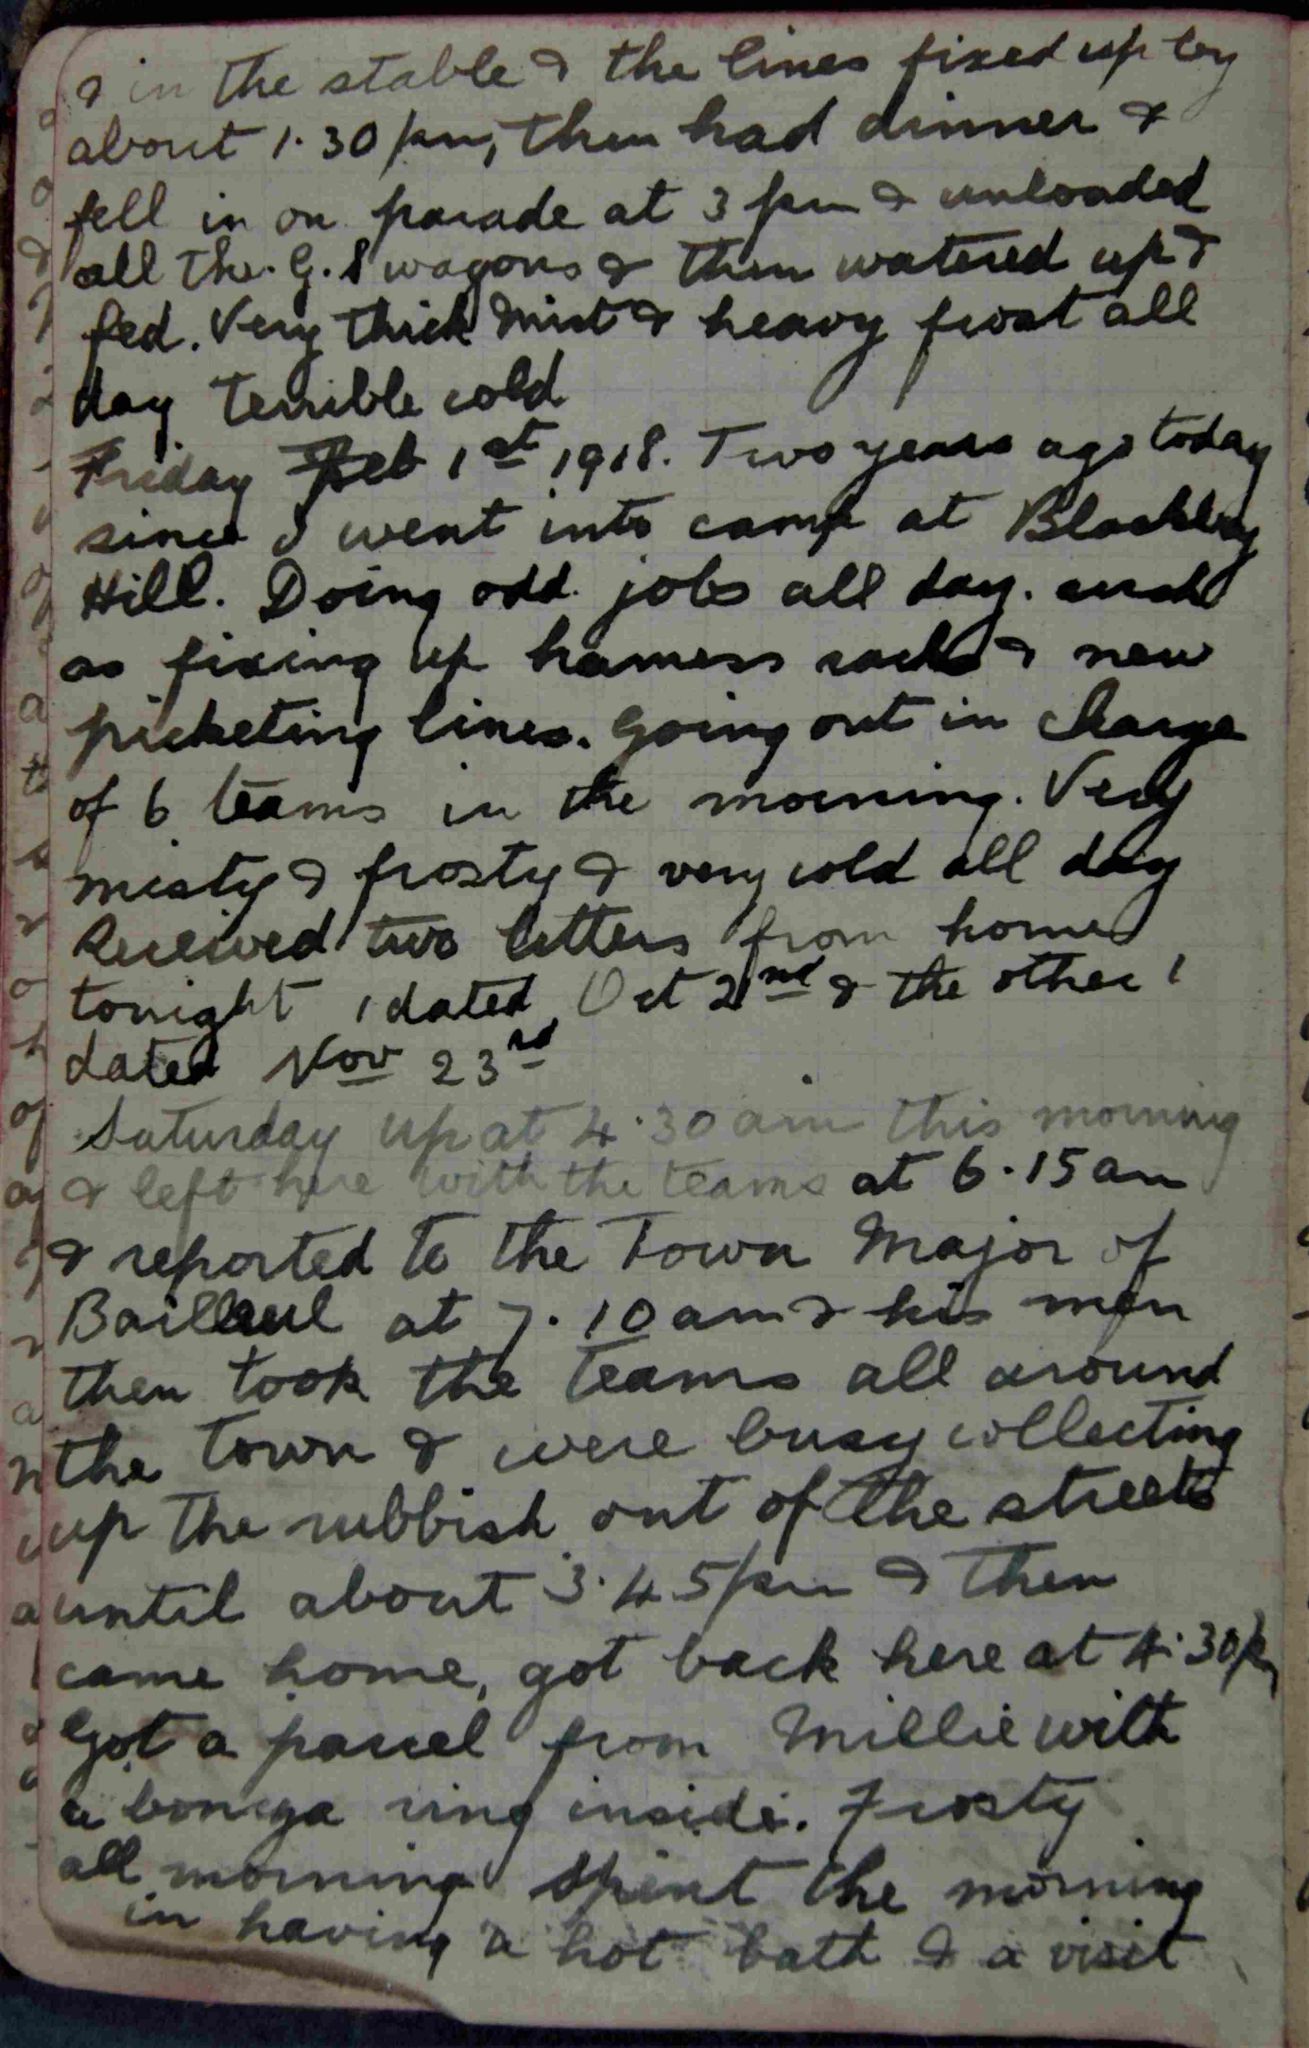 & in the stable & the lines fixed up by
about 1.30 pm, then had dinner &
fell in on parade at 3 pm & unloaded
all the G.S wagons & then watered up &
fed. Very thick mist & heavy frost all
day terrible cold
Friday Feb 1st 1918. Two years ago today
since I went into camp at Blackboy
Hill. Doing odd jobs all day. such
as fixing up harness racks & new
picketing lines. Going out in charge
of 6 teams in the morning. Very
misty & frosty & very cold all day
Received two letters from home
tonight 1 dated Oct 2nd & the other 1
dated Nov 23rd
Saturday up at 4.30 am this morning
& left here with the teams at 6.15 am
& reported to the Town Major of
Bailleul at 7.10 am & his men
then took the teams all around
the town & were busy collecting
up the rubbish out of the streets
until about 3.45 pm & then
came home, got back here at 4.30 pm
Got a parcel from Millie with
a ring inside. Frosty
all morning spent the morning
in having a hot bath & a visit